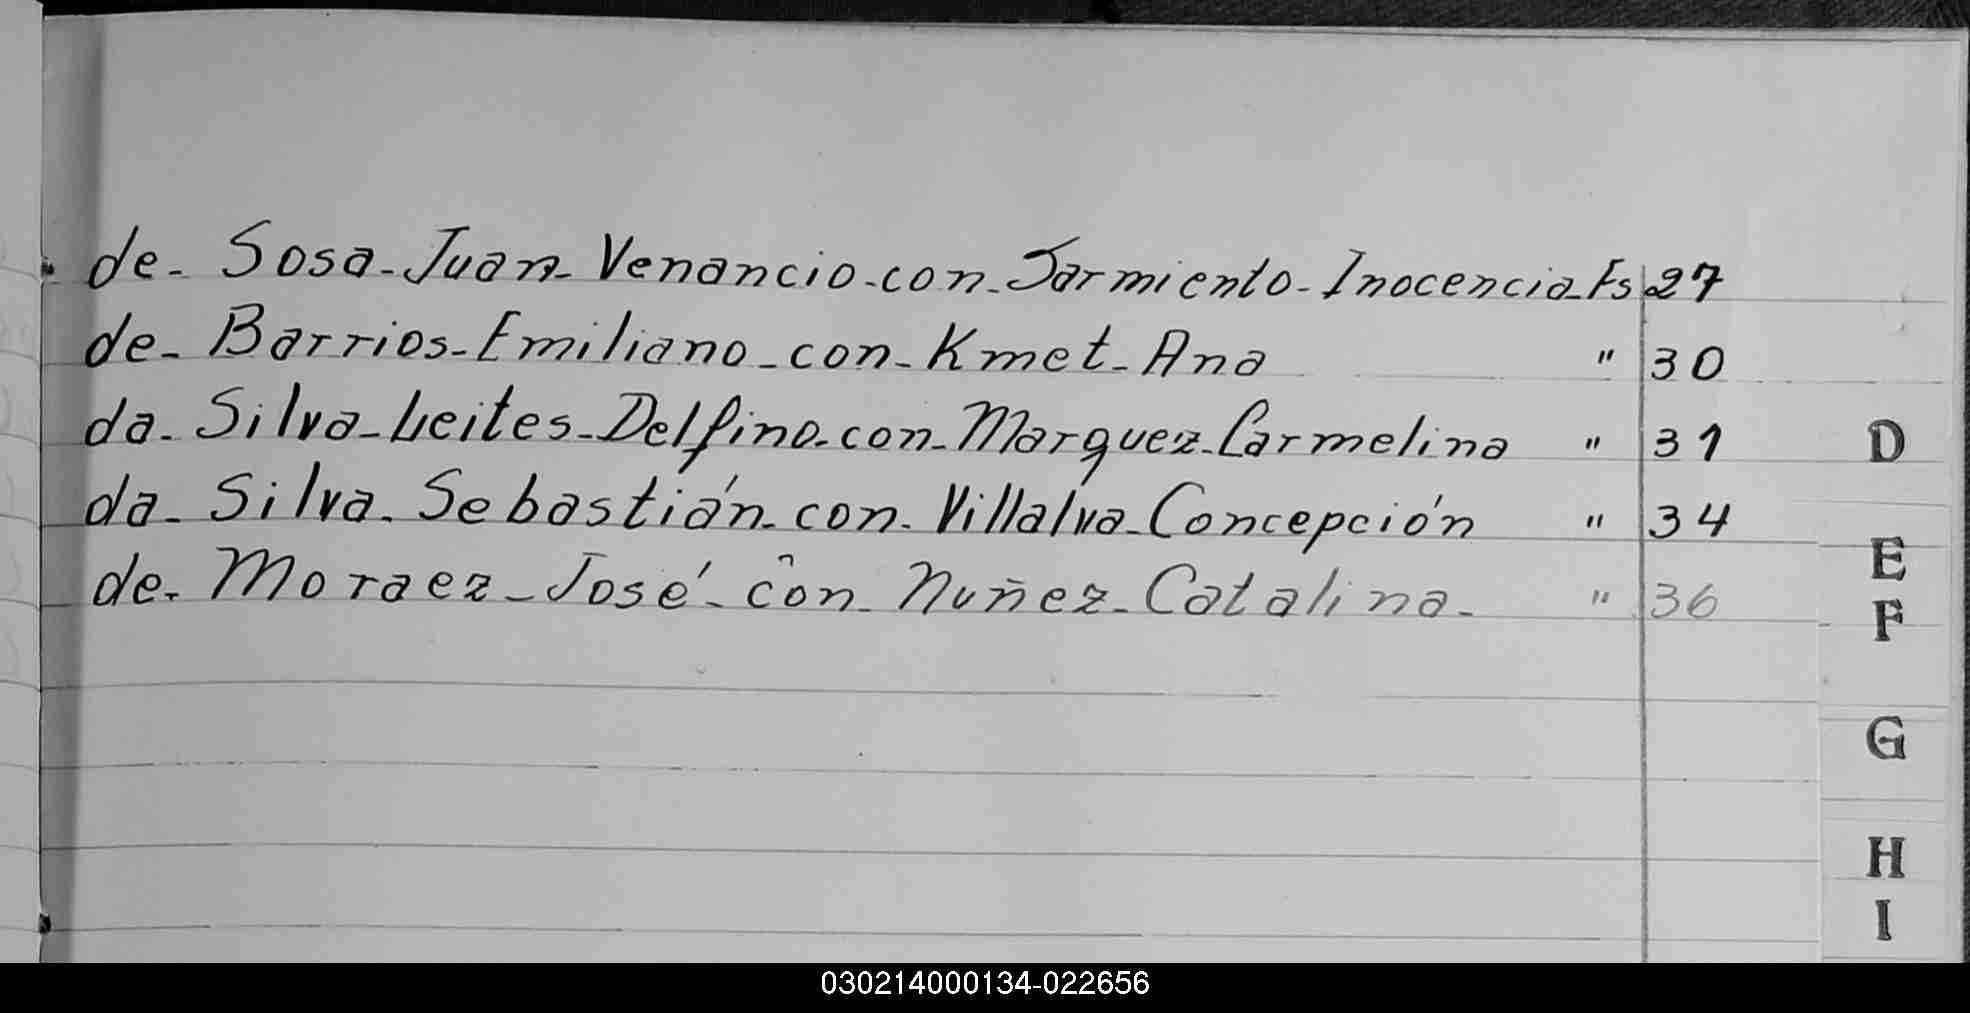 de- Sosa-Juan-Venancio-con-Sarmiento-Inocencia-Fs 27
de- Barrios-Emiliano-con-Kmet-Ana " 30
da- Silva-Leites-Delfino-con-Marquez-Carmelina " 31
da- Silva- Sebastián-con- Villalva-Concepción " 34
de- Moraez-José-con-Nuñez-Catalina- " 36
D
E
F
G
H
I
030214000134-022656